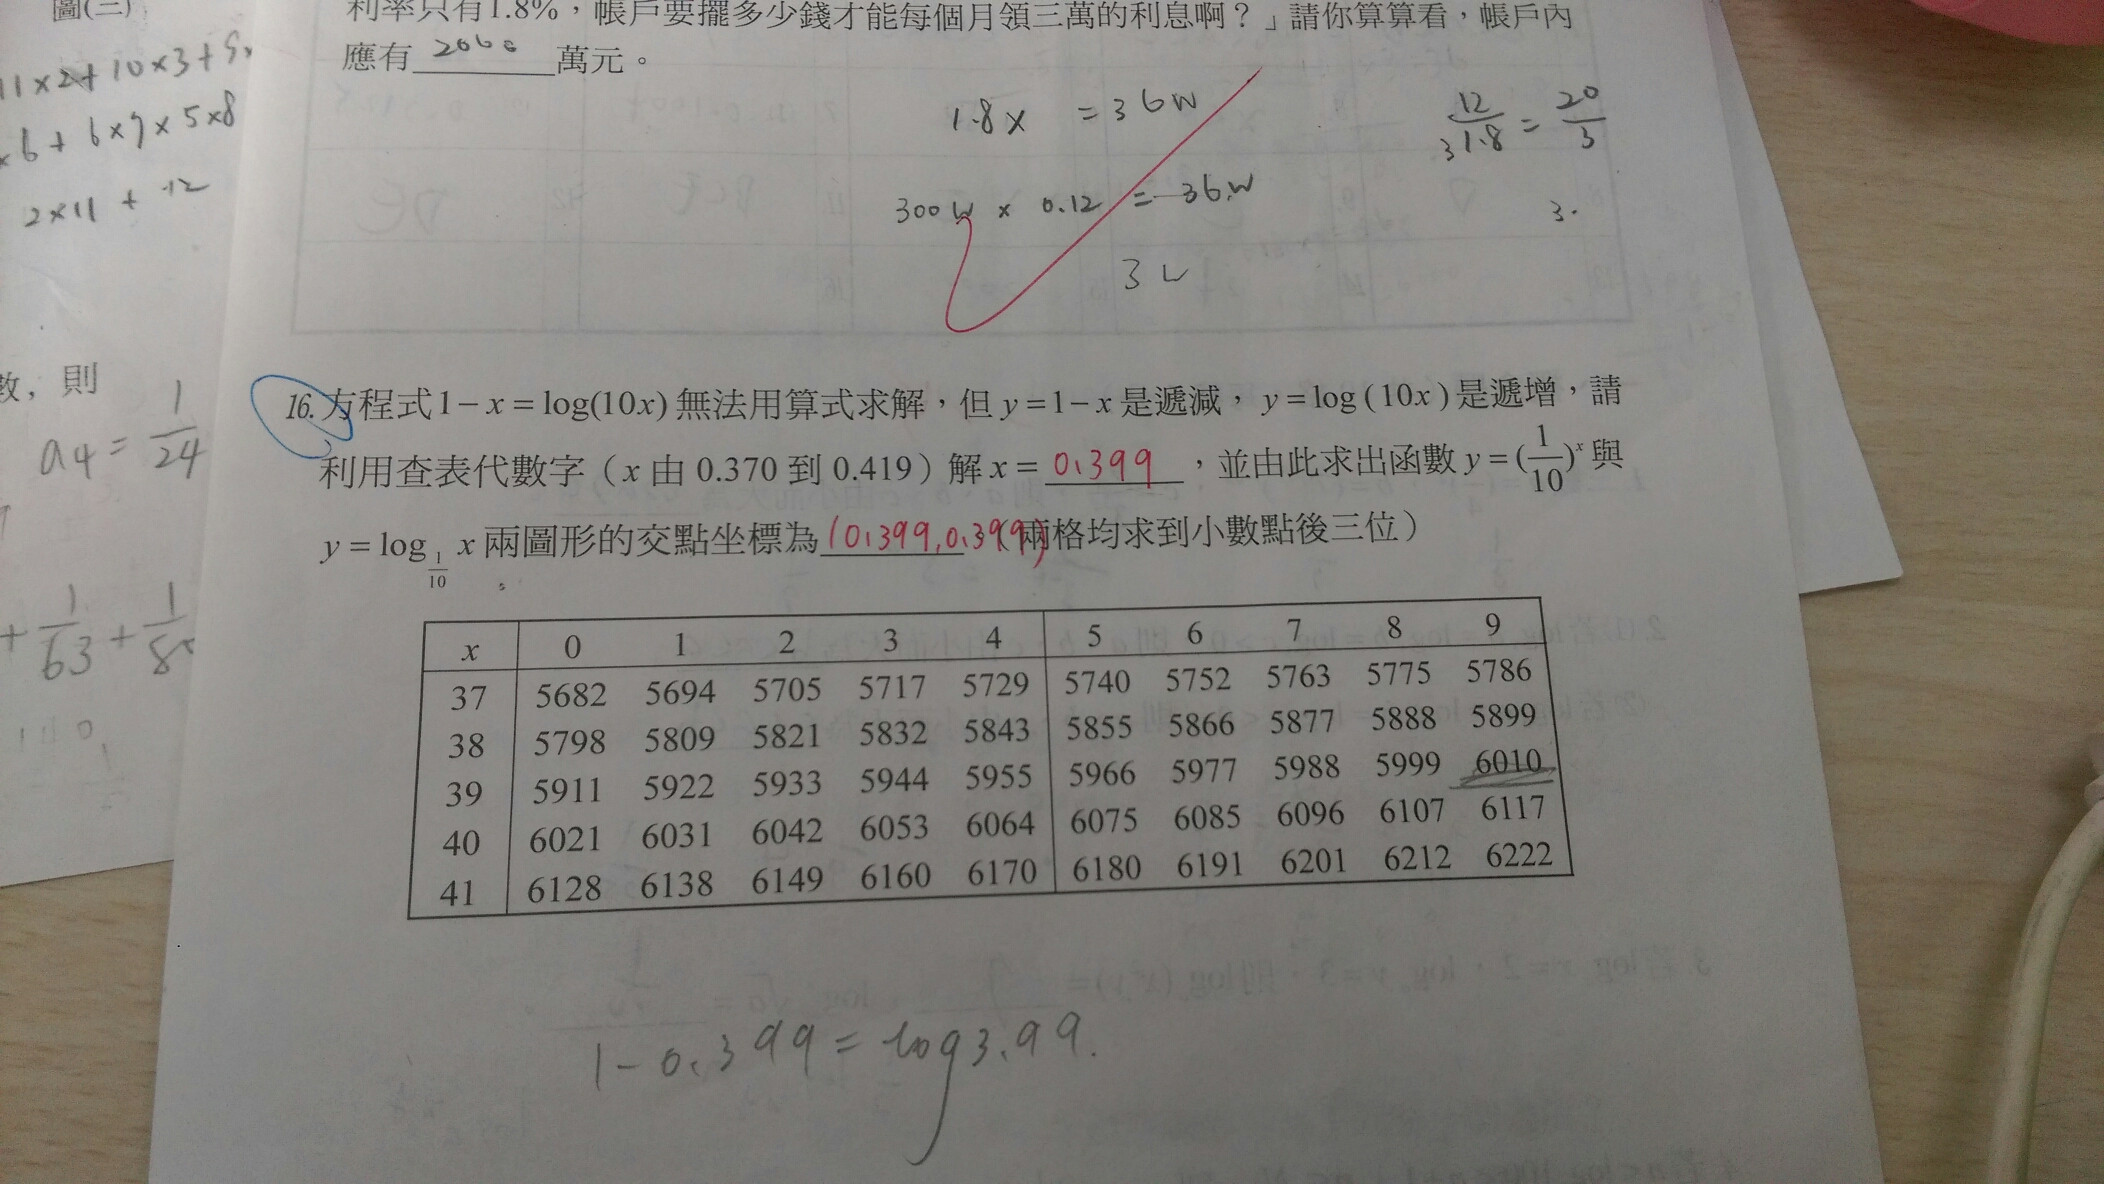 圖(三)
11×2+10×3+9
×6+6×7×5×8
2×11+12
數，則
a4=1/24
+1/63+1/8
利率只有1.8%，帳戶要擺多少錢才能每個月領三萬的利息啊？」請你算算看，帳戶內
應有 2000 萬元。
1.8x =36w
12/1.8=20/3
3
300w × 0.12 =36w
3.
3w
16. 方程式1−x=log(10x)無法用算式求解，但y=1−x是遞減，y=log(10x)是遞增，請
利用查表代數字（x由0.370到0.419）解x= 0.399 ，並由此求出函數y=(1/10)^x與
y=log_{1/10} x兩圖形的交點坐標為 (0.399,0.399) （兩格均求到小數點後三位）
。
x 0 1 2 3 4 5 6 7 8 9
37 5682 5694 5705 5717 5729 5740 5752 5763 5775 5786
38 5798 5809 5821 5832 5843 5855 5866 5877 5888 5899
39 5911 5922 5933 5944 5955 5966 5977 5988 5999 6010
40 6021 6031 6042 6053 6064 6075 6085 6096 6107 6117
41 6128 6138 6149 6160 6170 6180 6191 6201 6212 6222
1−0.399=log3.99.